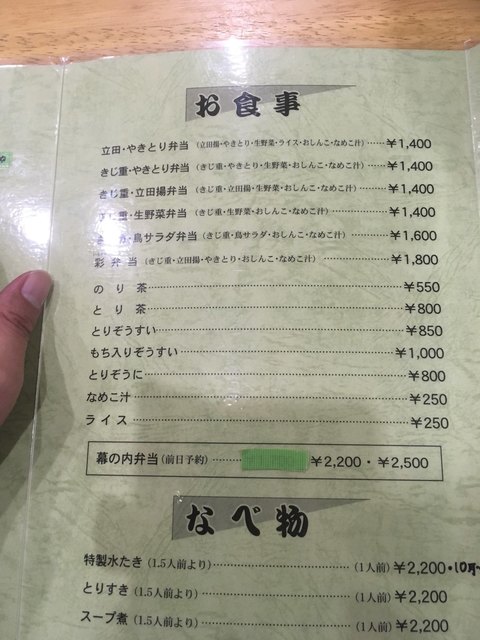 お食事
立田・やきとり弁当（立田揚・やきとり・生野菜・ライス・おしんこ・なめこ汁）……￥1,400
きじ重・やきとり弁当（きじ重・やきとり・生野菜・おしんこ・なめこ汁）……￥1,400
きじ重・立田揚弁当（きじ重・立田揚・生野菜・おしんこ・なめこ汁）……￥1,400
じ重・生野菜弁当（きじ重・生野菜・おしんこ・なめこ汁）……￥1,400
鳥サラダ弁当（きじ重・鳥サラダ・おしんこ・なめこ汁）……￥1,600
彩弁当（きじ重・立田揚・やきとり・おしんこ・なめこ汁）……￥1,800
のり茶……￥550
とり茶……￥800
とりぞうすい……￥850
もち入りぞうすい……￥1,000
とりぞうに……￥800
なめこ汁……￥250
ライス……￥250
幕の内弁当（前日予約）……￥2,200・￥2,500
なべ物
特製水たき（1.5人前より）……（1人前）￥2,200・10月〜
とりすき（1.5人前より）……（1人前）￥2,200
スープ煮（1.5人前より）……（1人前）￥2,200